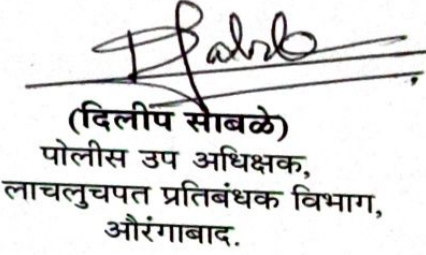 (दिलीप साबळे)
पोलीस उप अधिक्षक,
लाचलुचपत प्रतिबंधक विभाग,
औरंगाबाद.